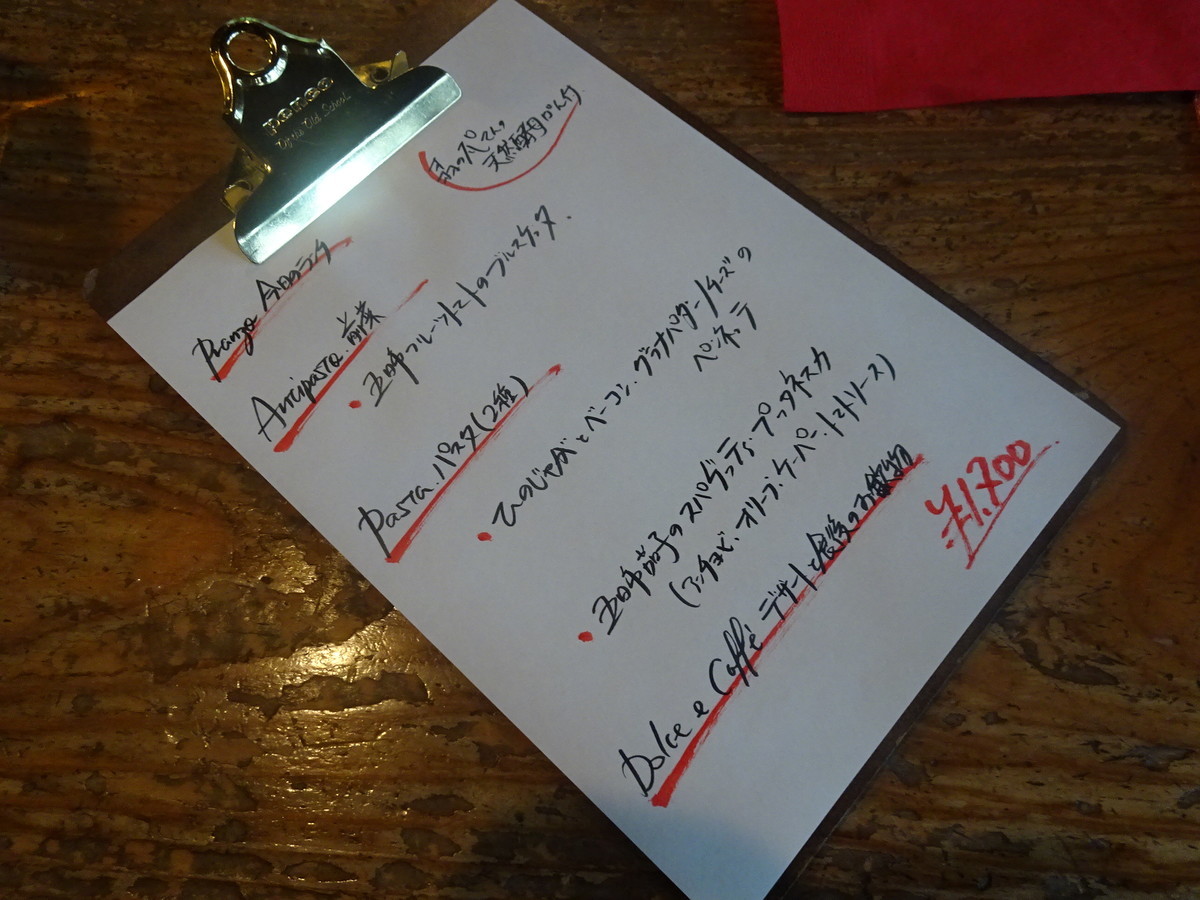 PENCO
天然酵母パン付
Pranzo 今日のランチ
Antipasto. 前菜
• 五日市フルーツトマトのブルスケッタ.
Pasta. パスタ(2種)
• ひのじゃがとベーコン. グラナパダーノチーズの
ペンネッテ
• 五日市茄子のスパゲッティ. プッタネスカ
(アンチョビ. オリーブ. ケーパー. トマトソース)
Dolce e Caffé デザートと食後のお飲物
¥1,700